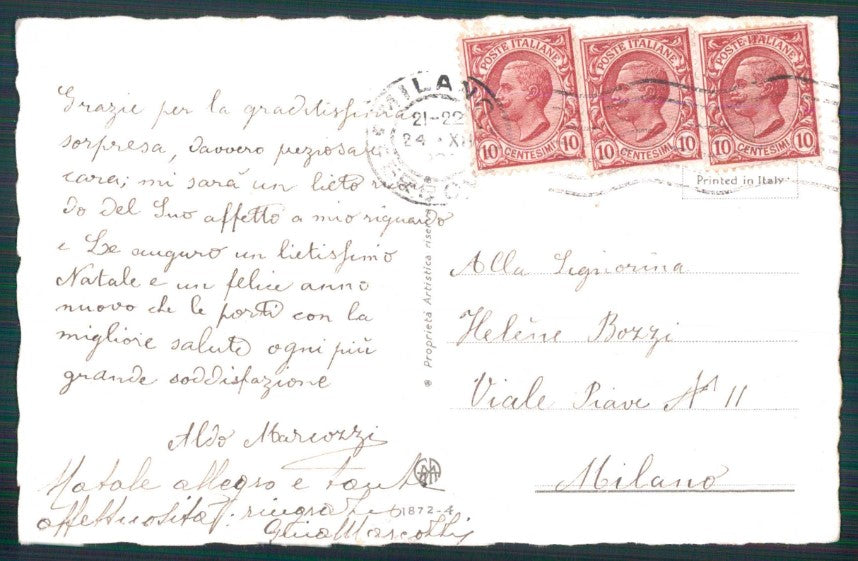 Grazie per la graditissima
sorpresa, davvero preziosa e
cara; mi sarà un lieto
do del Suo affetto a mio riguardo
e Le auguro un lietissimo
Natale e un felice anno
nuovo che le porti con la
migliore salute ogni più
grande soddisfazione
Aldo Marcozzi
Natale allegro e tante
affettuosità
1872-4
Proprietà Artistica riserv
MILAN
21-22
24 XII
POSTE ITALIANE
10 CENTESIMI 10
POSTE ITALIANE
10 CENTESIMI 10
POSTE ITALIANE
10 CENTESIMI 10
Printed in Italy
Alla Signorina
Helène Bozzi
Viale Piave Nº 11
Milano